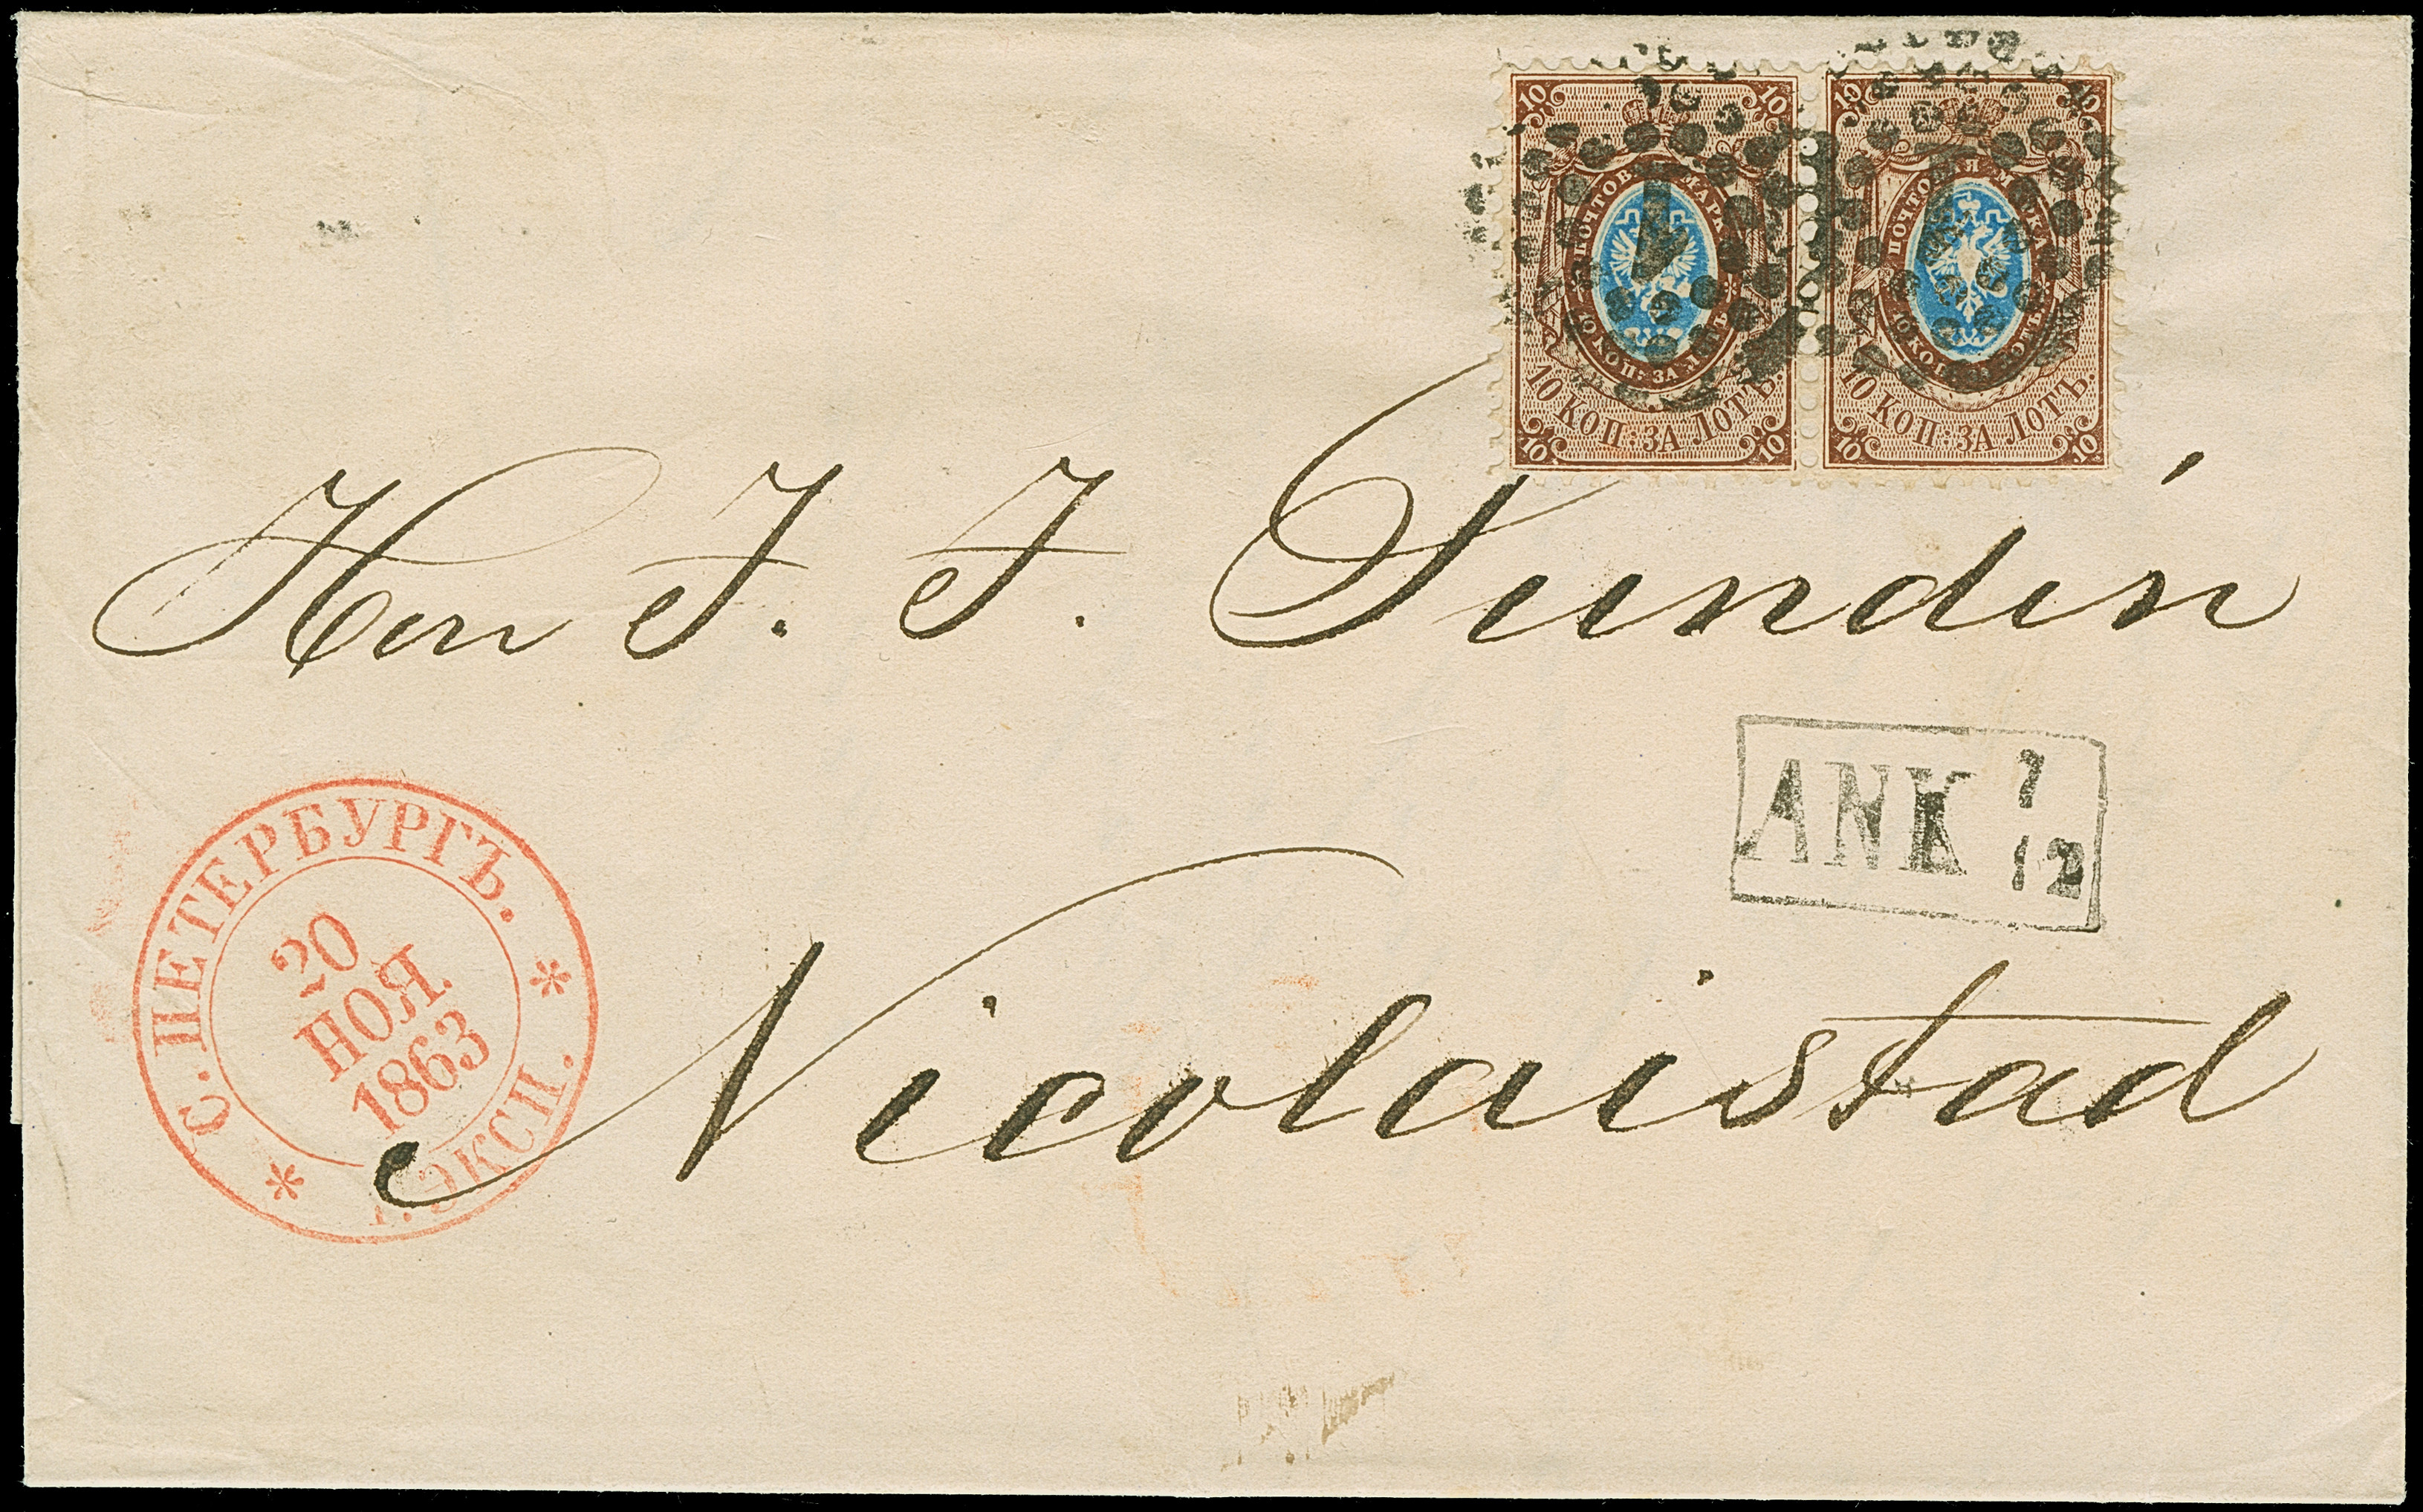 10 10
ПОЧТОВАЯ МАРКА
10 КОП: ЗА ЛОТЪ
10 КОП: ЗА ЛОТЪ.
10 10
10 10
ПОЧТОВАЯ МАРКА
10 КОП: ЗА ЛОТЪ
10 КОП: ЗА ЛОТЪ.
10 10
1
Herr J. J. Sundin
ANK 7
12
С. ПЕТЕРБУРГЪ.
20
НОЯ.
1863
I. ЭКСП.
Nicolaistad